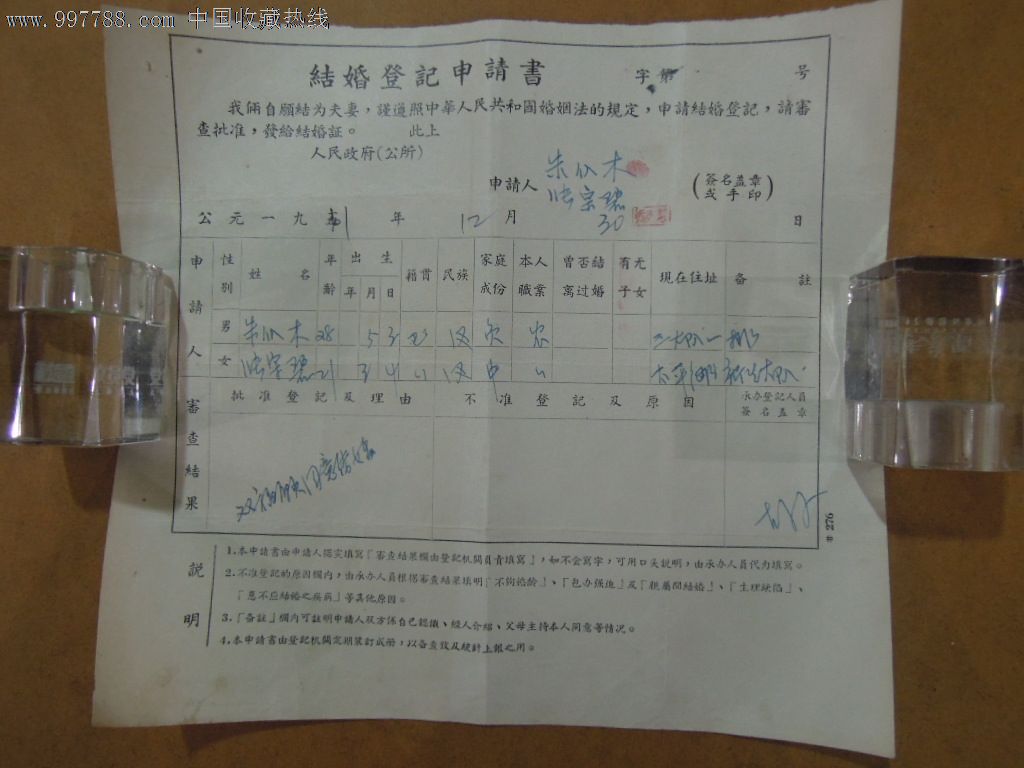 www.997788.com 中国收藏热线
結婚登記申請書 字第 号
我倆自願結为夫妻，謹遵照中華人民共和國婚姻法的規定，申請結婚登記，請審
查批准，發給結婚証。 此上
人民政府(公所)
申請人 朱 木 (簽名盖章或手印)
宗碧
公元一九 年 12 月 30 日
申請人 性別 姓名 年齡 出生 年 月 日 籍貫 民族 家庭成份 本人職業 曾否結离过婚 有无子女 現在住址 备註
男 朱 木 28 5 3 汉 农
女 宗碧 21 3 4 〃 汉 中 〃
審查結果 批准登記及理由 不准登記及原因 承办登記人員簽名盖章
双 同意结婚
# 276
說明
1.本申請書由申請人認实填寫「審查結果欄由登記机関負責填寫」，如不会寫字，可用口头說明，由承办人員代为填寫。
2.不准登記的原因欄內，由承办人員根据審查結果填明「不夠婚齡」、「包办强迫」及「親屬間結婚」、「生理缺陷」、
「患不应結婚之疾病」等其他原因。
3.「备註」欄内可註明申請人双方係自己認識、經人介紹、父母主持本人同意等情况。
4.本申請書由登記机関定期装訂成册，以备查攷及統計上報之用。